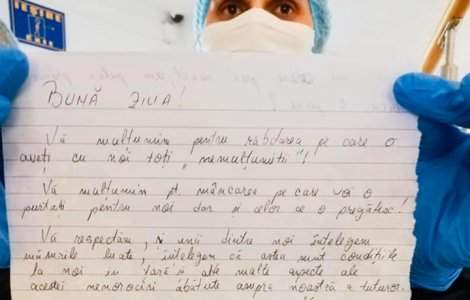 IEȘIRE
EXIT
BUNĂ ZIUA!
Vă mulțumim pentru răbdarea pe care o
aveți cu noi toți "nemulțumiții"!
Vă mulțumim pt. mâncarea pe care voi o
purtați pentru noi dar și celor ce o pregătesc!
Vă respectăm, și unii dintre noi înțelegem
măsurile luate, înțelegem că astea sunt condițiile
la noi în țară și alte multe aspecte ale
acestei nenorociri abătute asupra noastră a tuturor.